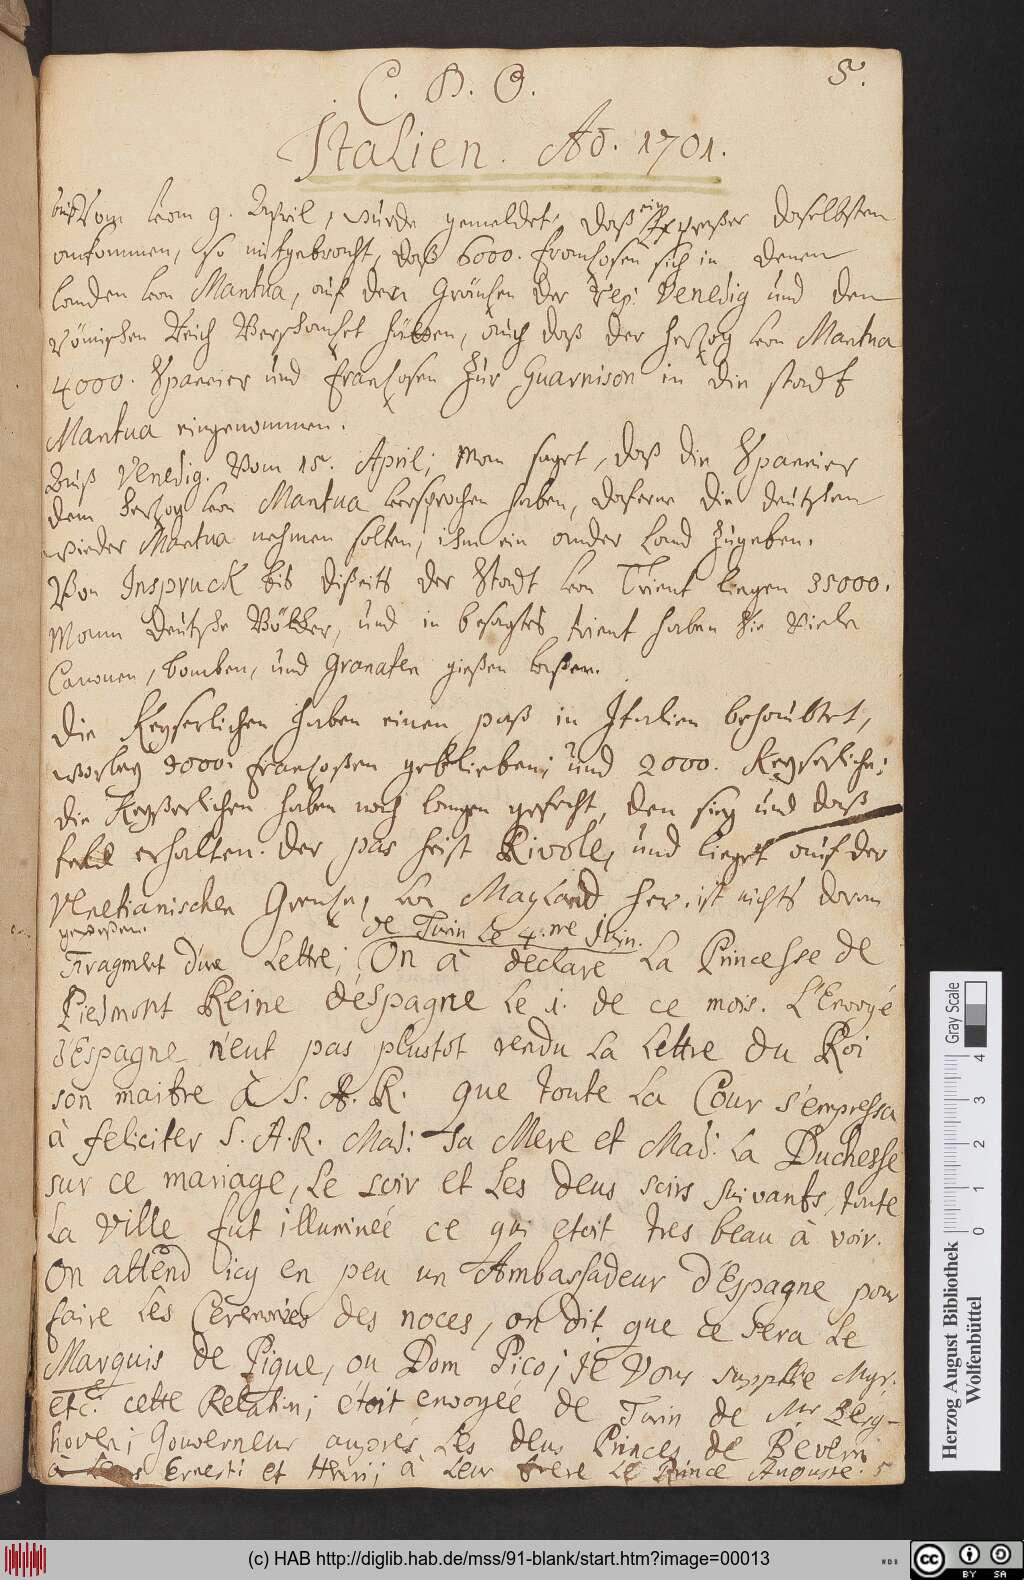 C. B. O.
5.
Italien. Ao. 1701.
Vom 9. April, wurde gemeldet, daß ein Expreßer daselbsten
ankommen, so mitgebracht, daß 6000. Franhosen sich in denen
landen von Mantua, auf den Gränhen der Rep: Venedig und den
Römischen Reich Verschanhet hätten, auch daß der Herhog von Mantua
4000. Spanier und Franhosen zur Guarnison in die stadt
Mantua eingenommen.
Auß Venedig. Vom 15. April; Man saget, daß die Spanier
dem Herhog von Mantua versprochen haben, daferne die deutschen
wieder Mantua nehmen solten, ihm ein ander Land zugeben.
Von Inspruck bis dißeits der Stadt von Trient liegen 35000.
Mann Deutsche Völker, und in besagtes trient haben Sie Viele
Canonen, bomben, und Granaten gießen laßen.
Die Keyserlichen haben einen paß in Italien behaubtet,
worbey 9000. Franhoßen geblieben; und 2000. Keyserliche;
die Keyßerlichen haben nach langen gefecht, den sieg und daß
feld erhalten. der pas heist Rivole, und lieget auf der
Venetianischen Grenhe, von Mayland her. ist nichts daran
geweßen.
de Turin le 4.me Juin.
Fragment d'une Lettre; On à declare La Princesse de
Piedmont Reine d'Espagne Le 1. de ce mois. L'Envoyé
d'Espagne n'eut pas plustot rendu La Lettre du Roi
son maitre à S. A. R. que toute La Cour s'empressa
à feliciter S. A. R. Mad: sa Mere et Mad: La Duchesse
sur ce mariage, Le soir et Les deus soirs suivants, toute
La Ville fut illumineé ce qui etoit tres beau à voir.
On attend icy en peu un Ambassadeur d'Espagne pour
faire Les Ceremonies des noces, on dit que ce sera Le
Marquis de Pique, ou Dom Pico; Je Vous supplie Mgr.
etc: cette Relation; étoit envoyée de Turin de Mr Berg-
hoven; Gouverneur auprés Les deus Princes de Bevern
à Ernesti et Henri; à Leur frere Le Prince Auguste. 5
Gray Scale
0 1 2 3 4
Herzog August Bibliothek
Wolfenbüttel
(c) HAB http://diglib.hab.de/mss/91-blank/start.htm?image=00013
WDB
cc BY SA